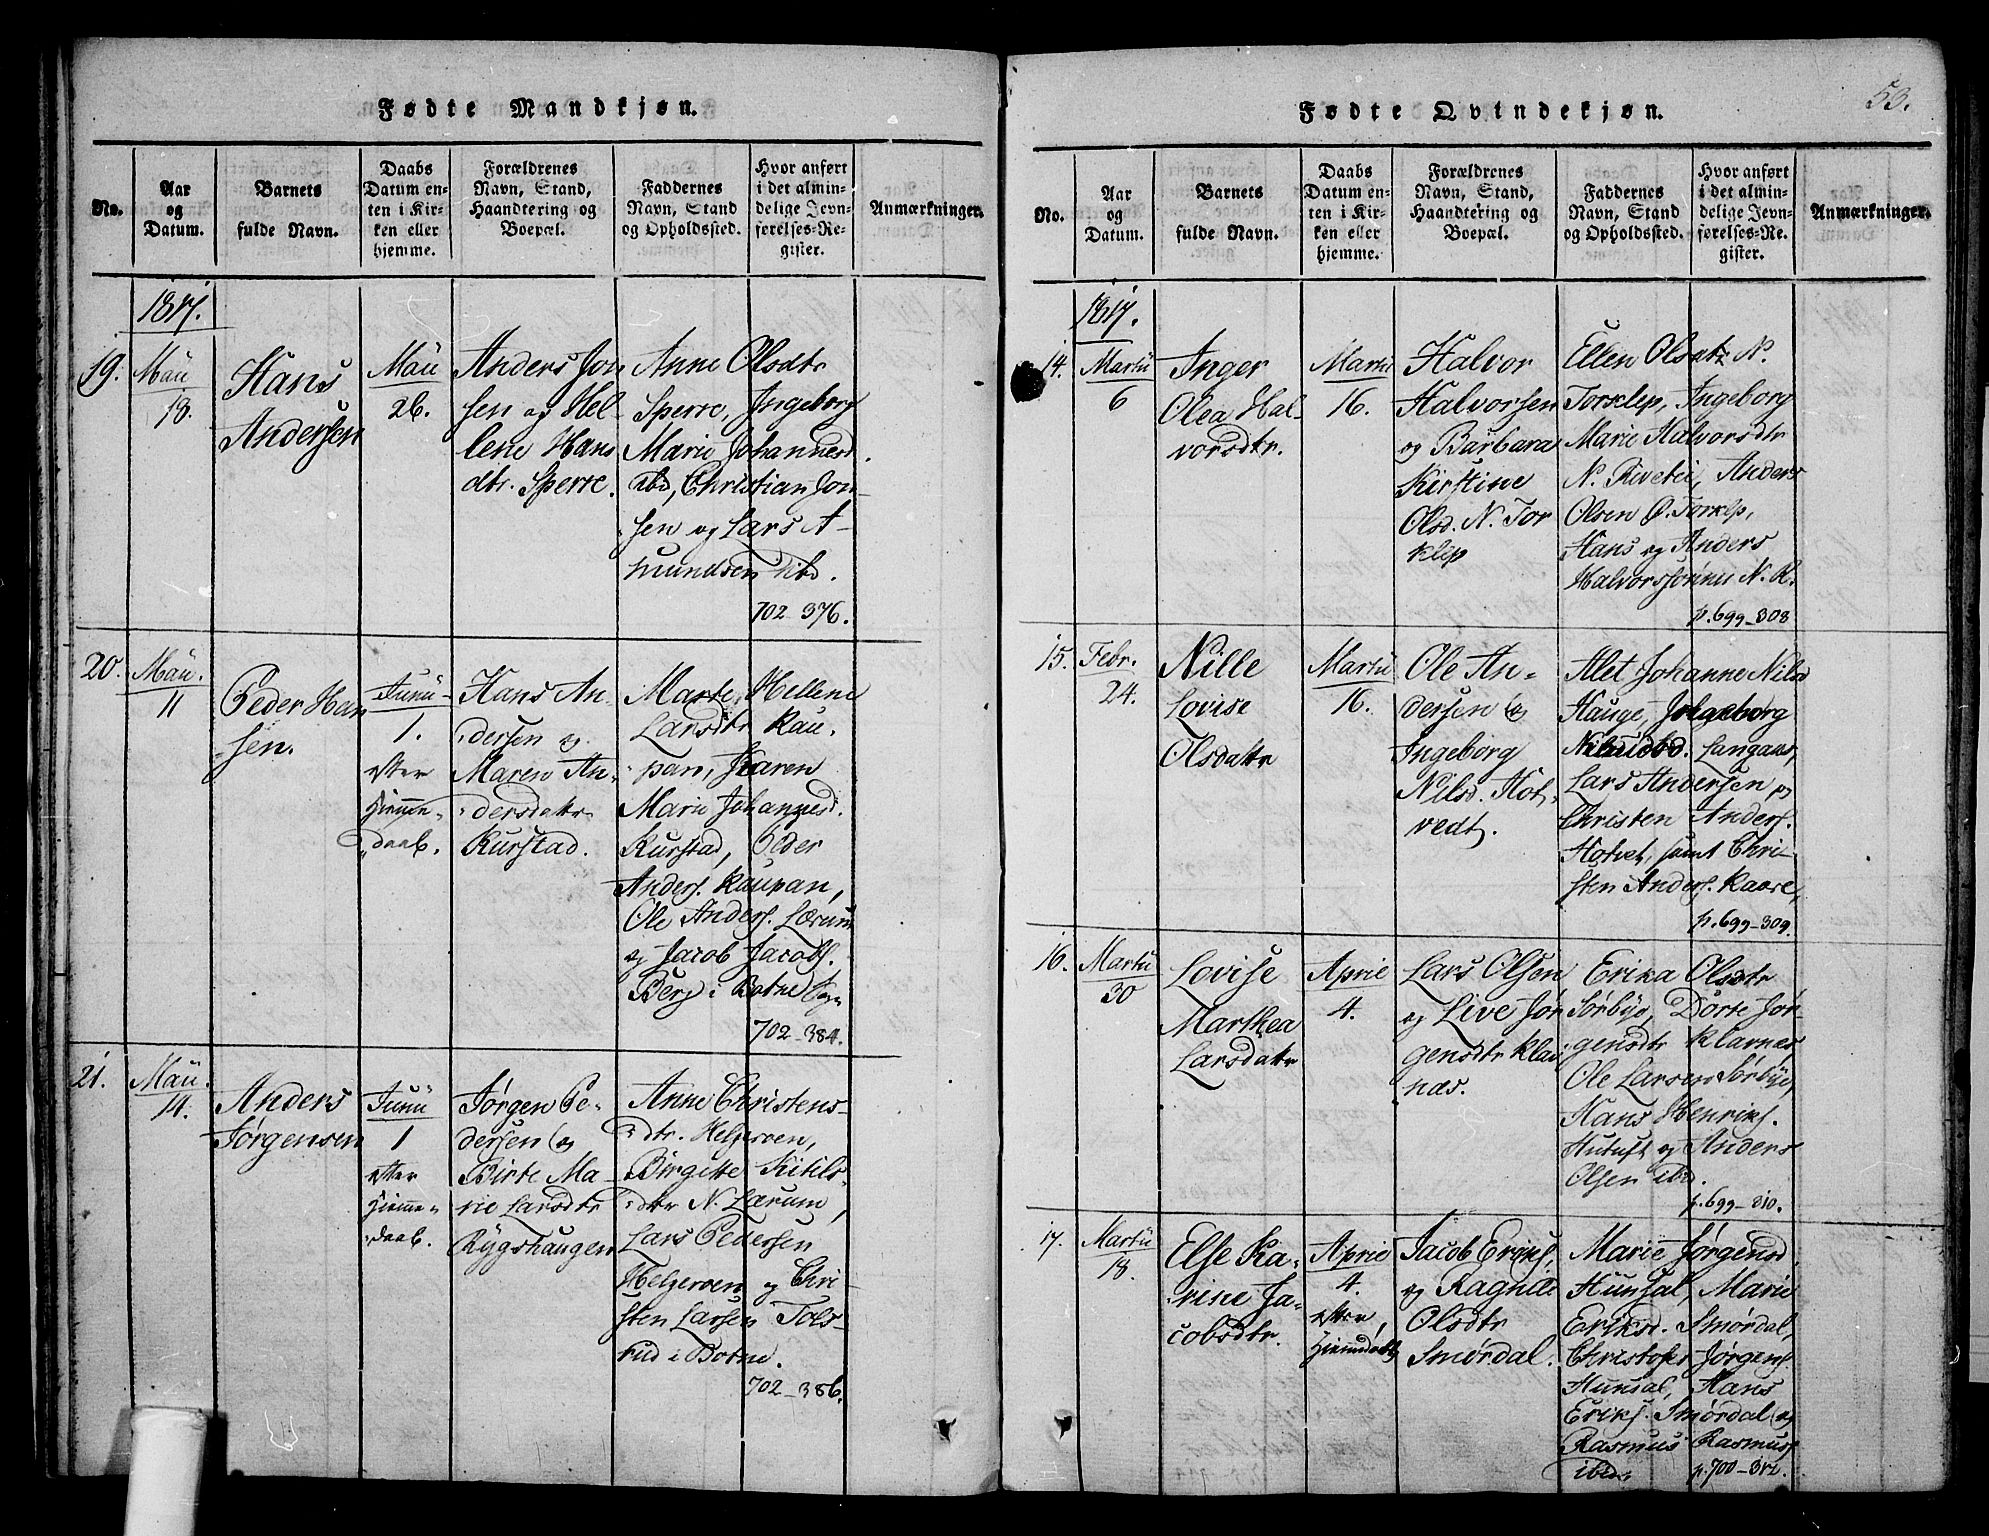 Fødte Mandkjøn.
No.
Aar
og
Datum.
Barnets
fulde Navn.
Daabs
Datum en-
ten i Kir-
ken eller
hjemme.
Forældrenes
Navn, Stand,
Haandtering og
Boepæl.
Faddernes
Navn, Stand
og Opholdssted.
Hvor anført
i det almin-
delige Jevn-
førelses-Re-
gister.
Anmærkninger.
1817.
19.
Maii
18.
Hans
Andersen
Maii
26.
Anders Jon
sen og Hel-
lene Hans
dtr. Sperre.
Anne Olsdtr
Sperre, Ingeborg
Marie Johannesd.
ibd, Christian Jon-
sen og Lars A-
mundsen ibd.
702-376.
20.
Maii.
11
Peder Han
sen.
Junii
1.
efter
Hjemme-
daab.
Hans An-
dersen og
Maren An-
dersdatr
Kurstad.
Marte Hellene
Larsdtr Kau-
pan, Karen
Marie Johannesd.
Kurstad, Peder
Anders. Kaupan,
Ole Anders. Lærum
og Jacob Jacobs.
Berg i Botne
702-384.
21.
Maii.
14.
Anders
Jørgensen
Junii
1
efter
Hjemme-
daab.
Jørgen Pe-
dersen og
Birte Ma-
rie Larsdtr
Rygshaugen
Anne Christens-
dtr. Helgeroen,
Birgitte Kitils-
dtr N. Lærum,
Lars Pedersen
Helgeroen og Chri-
sten Larsen Tols-
rud i Botne.
702-386.
53.
Fødte Qvindekjøn.
No.
Aar
og
Datum.
Barnets
fulde Navn.
Daabs
Datum en-
ten i Kir-
ken eller
hjemme.
Forældrenes
Navn, Stand,
Haandtering og
Boepæl.
Faddernes
Navn, Stand
og Opholdssted.
Hvor anført
i det almin-
delige Jevn-
førelses-Re-
gister.
Anmærkninger.
1817.
14.
Martii
6
Inger
Olea Hal-
vorsdtr.
Martii
16.
Halvor
Halvorsen
og Barbara
Kirstine
Olsd. N. Tor
klep
Ellen Olsdatr N.
Torklep, Ingeborg
Marie Halvorsdtr
N. Rivetii, Anders
Olsen Ø. Torklp,
Hans og Anders
Halvorssønner N. R.
p. 699-308
15.
Febr.
24.
Nille
Lovise
Olsdatr
Martii
16.
Ole An-
dersen og
Ingeborg
Nilsd. Hot-
vedt.
Alet Johanne Nilsd
Hauge, Ingeborg
Langaas,
Lars Andersen og
Christen Anders.
Hotvet, samt Chri-
sten Anders. Kaare,
p. 699-309.
16.
Martii
30
Lovise
Marthea
Larsdatr
Aprie
4.
Lars Olsen
og Live Jør
gensdtr Klav
næs.
Erika Olsdtr
Sørbye, Dorte Jør-
gensdtr Klavnes
Ole Larsen Sørbye,
Hans Henriks.
Hutuft og Anders
Olsen ibd.
p. 699-310.
17.
Martii
18.
Else Ka-
rine Ja-
cobsdtr.
Aprie
4.
efter
Hjemdaab
Jacob Eriks.
og Ragnild
Olsdtr
Smørdal.
Marie Jørgensd.
Hunsal, Marie
Eriksd. Smørdal,
Christofer Jørgens.
Hunsal, Hans
Eriks. Smørdal og
Rasmus Rasmuss
ibd.
p. 700-312.